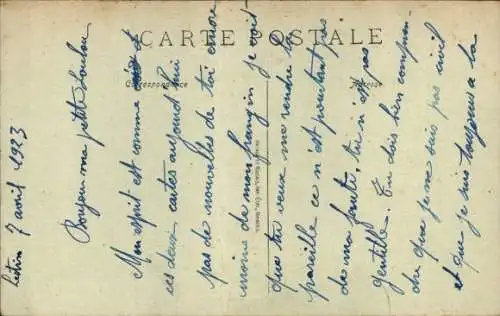 CARTE POSTALE
Correspondance
Adresse
Lestin 7 avril 1923
Bonjour ma petite Loulou
Mon esprit est comme ciel et
ces deux cartes aujourd'hui
pas de nouvelles de toi encore
moins de mon frangin je vois
que tu veux me rendre la
pareille ce n'est pourtant pas
de ma faute, tu n'es pas
gentille. Tu dois bien compren
dre que je ne suis pas civil
et que je suis toujours a la